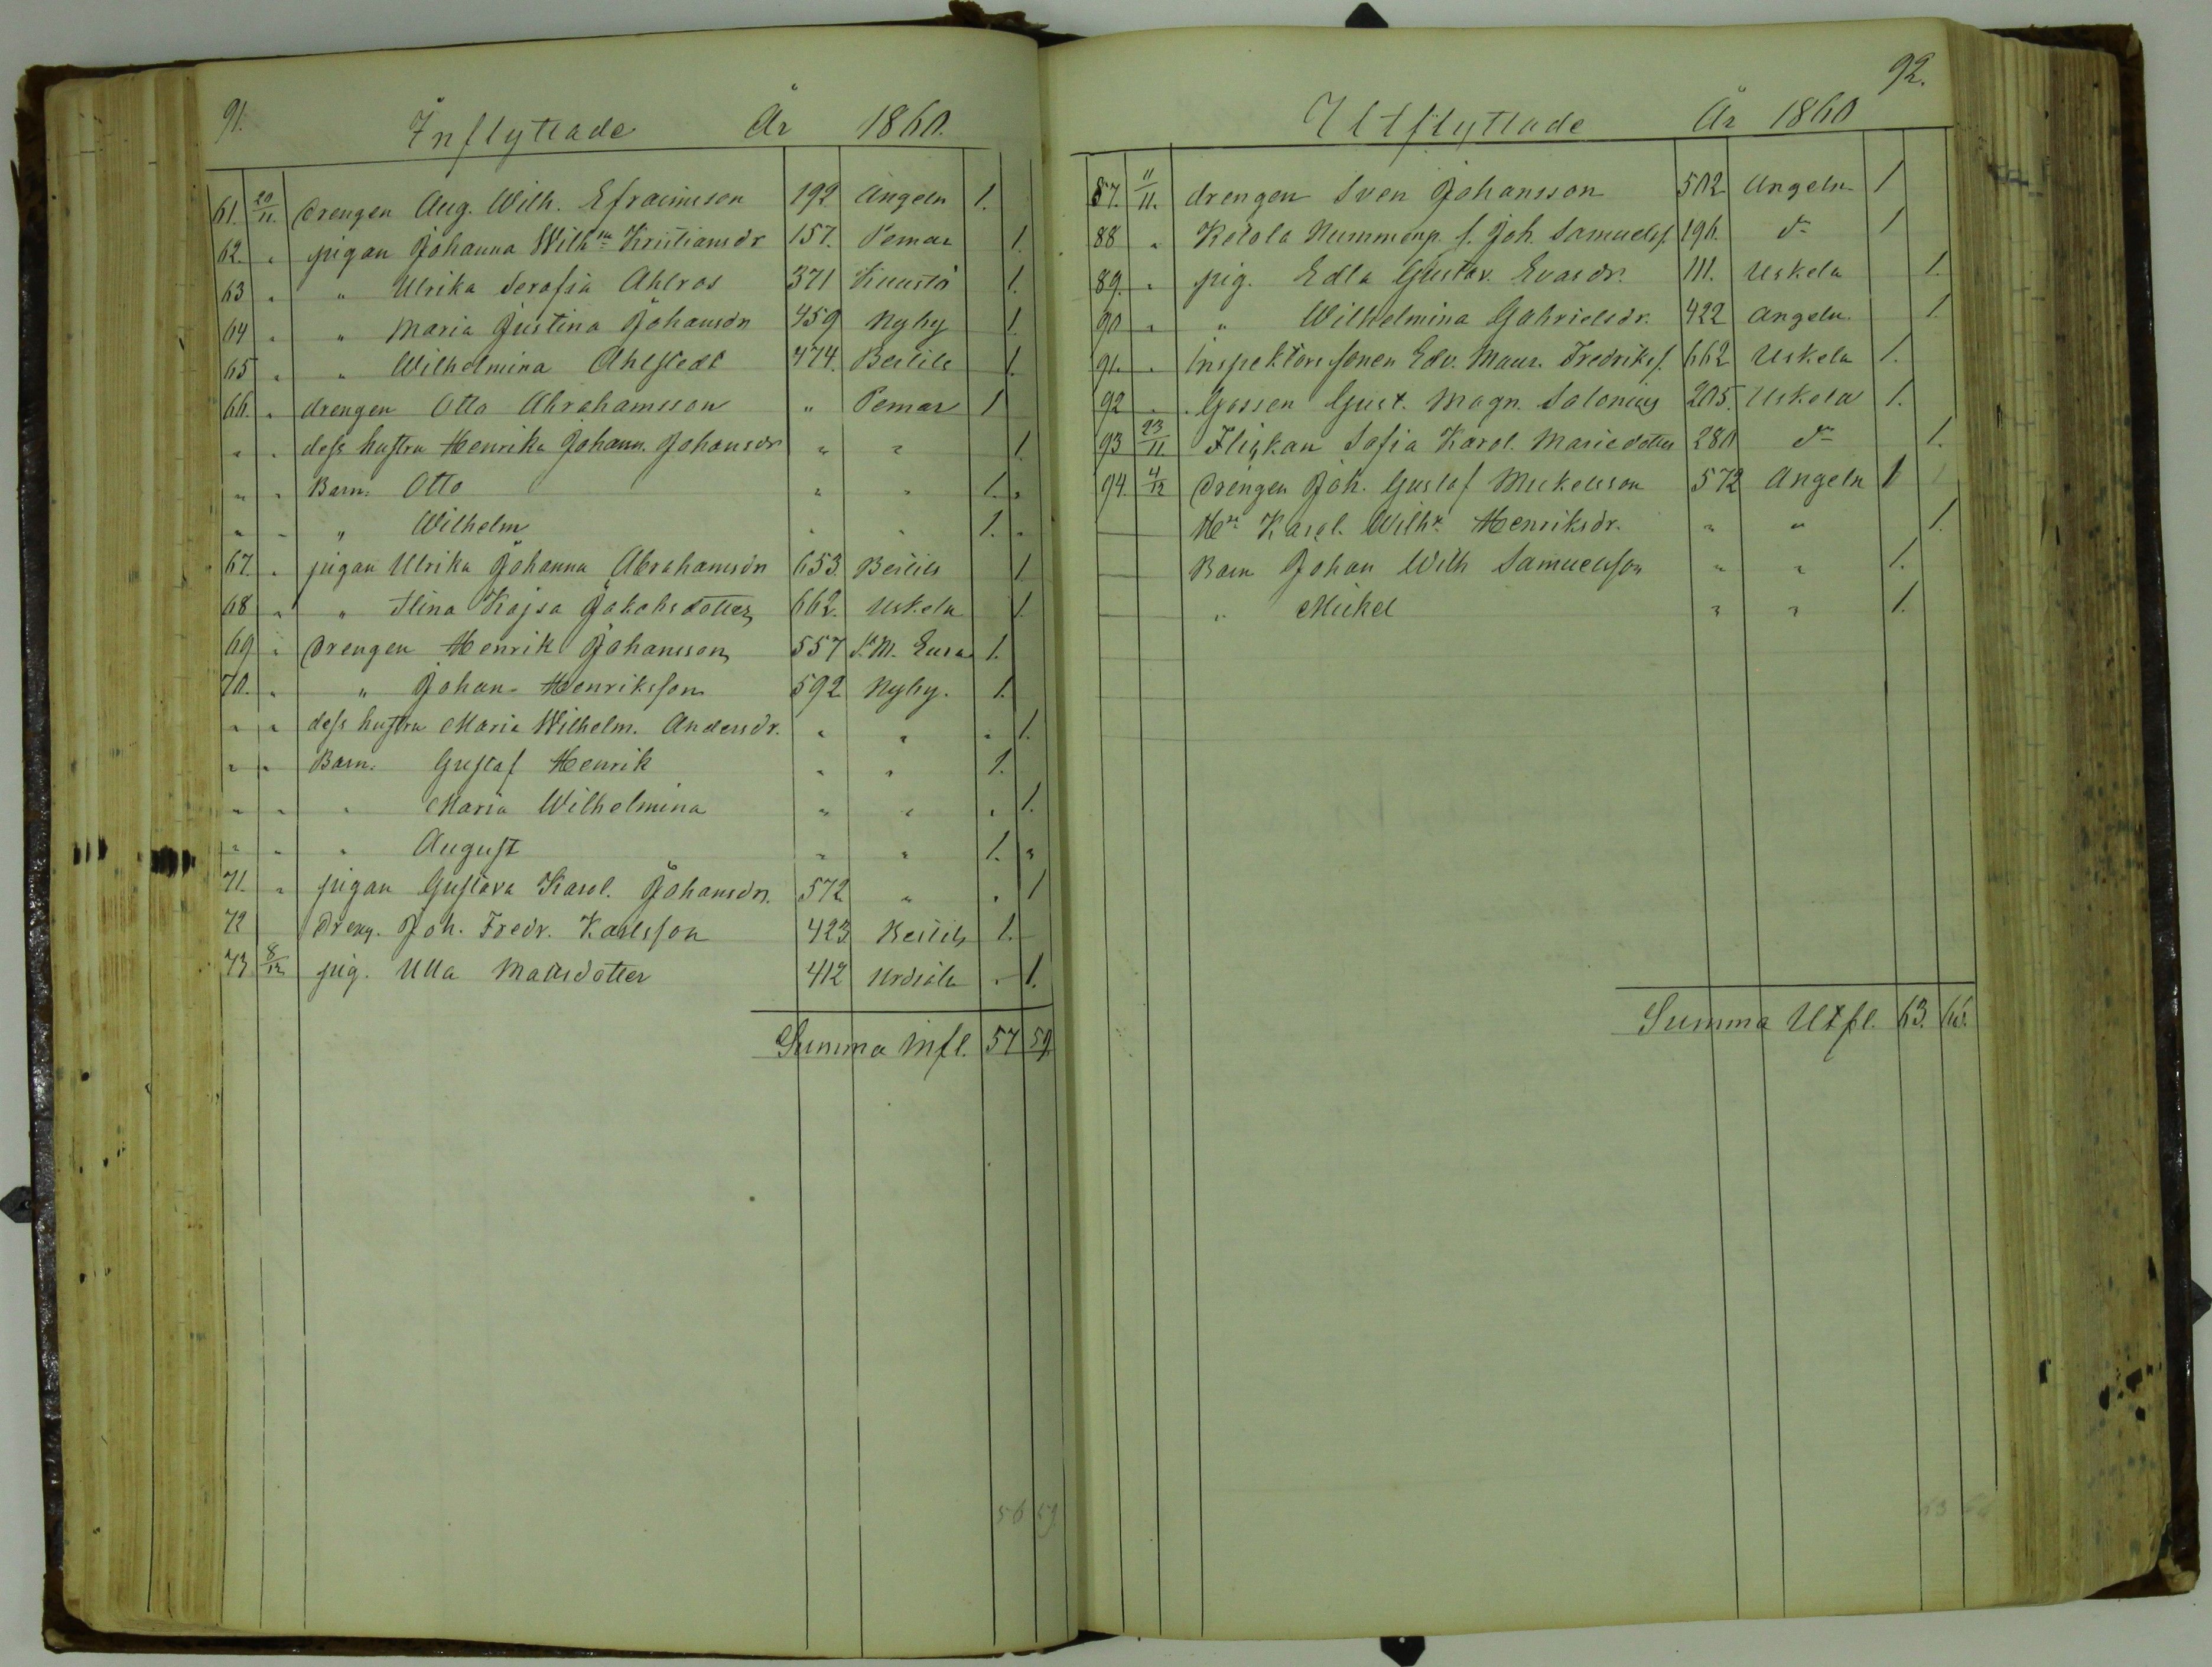 91.
Inflyttade År 1860.
61. 20/11. drengen Aug. Wilh. Efraimsson 192 Angeln 1.
62. " pigan Johanna Wilhna Kristiansdr 157. Pemar 1.
63 " " Ulrika Serafia Ahlros 371 Kuustö 1.
64 " " Maria Justina Johansdr 459 Nyby 1.
65 " " Wilhelmina Ahlstedt 474. Beilils 1.
66. " drengen Otto Abrahamsson " Pemar 1
" " dess hustru Henrika Johann. Johansdr " " 1.
" " Barn: Otto " " 1. "
" " " Wilhelm " " 1. "
67. " pigan Ulrika Johanna Abrahamsdr 653. Beilils 1
68 " " Stina Kajsa Jakobsdotter 662. Uskela 1.
69 " drengen Henrik Johansson 557 S:t M. Eura 1.
70. " " Johan Henriksson 592 Nyby. 1.
" " dess hustru Maria Wilhelm. Andersdr. " " " 1.
" " Barn. Gustaf Henrik " " 1.
" " " Maria Wilhelmina " " " 1.
" " " August " " 1. "
71. " pigan Gustava Karol. Johansdr. 572 " " 1
72 Dreng. Joh. Fredr. Karlsson 423 Beilils 1.
73 8/12 pig. Ulla Mattsdotter 412 Urdiala " 1.
Summa Infl. 57 59.
56 59
92.
Utflyttade År 1860
87. 11/11. drengen Sven Johansson 502 Angeln 1
88 " Ketola Nummenp. s. Joh. Samuelss. 196. do 1
89. " pig. Edla Gustav. Evasdr. 111. Uskela 1.
90 " " Wilhelmina Gabrielsdr. 422 Angeln. 1.
91. " Inspektors sonen Edv. Maur. Fredrikss. 662 Uskela 1.
92 " Gossen Gust. Magn. Salonius 205. Uskela 1.
93 23/11. Flickan Sofia Karol. Mariedotter 280 do 1.
94. 4/12 Drengen Joh. Gustaf Mickelsson 572 Angeln 1
Hu Karol. Wilh. Henriksdr. " " 1.
Barn Johan Wilh Samuelsson " " 1.
" Mickel " " 1.
Summa Utfl. 63. 66.
63